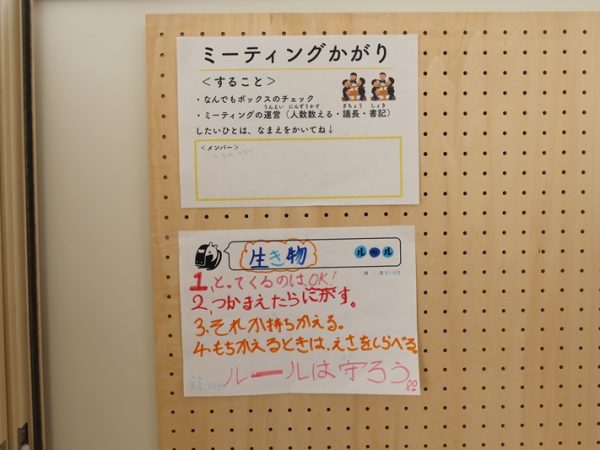 ミーティングかがり
＜すること＞
・なんでもボックスのチェック
・ミーティングの運営（人数数える・議長・書記）
したいひとは、なまえをかいてね↓
＜メンバー＞
生き物
ルール
1、とってくるのは、OK!
2、つかまえたらにがす。
3、それか持ちかえる。
4、もちかえるときは、えさをしらべる
ルールは守ろう。